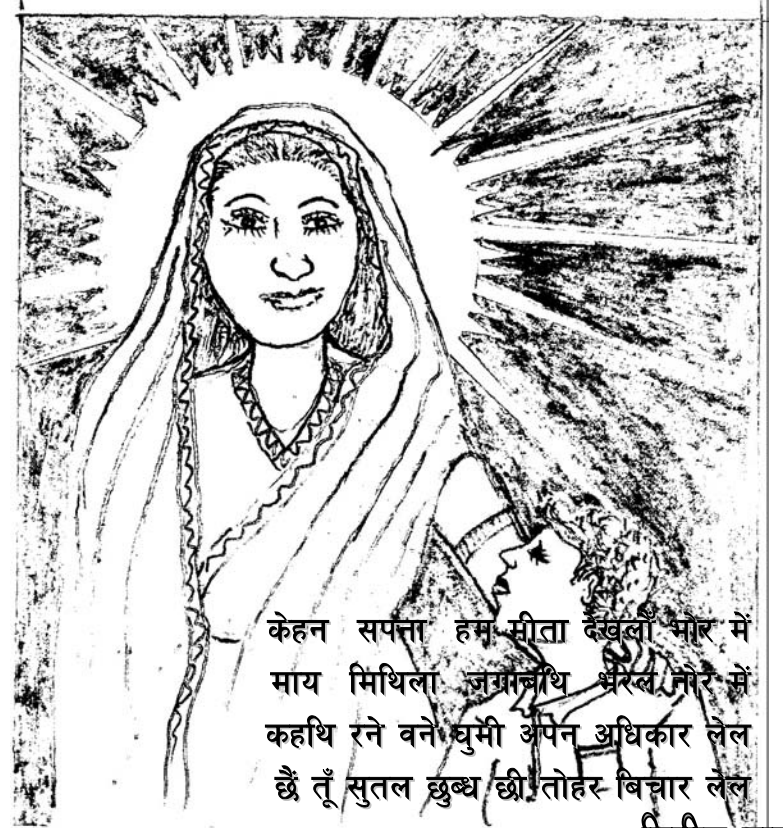 केहन सपना हम मीता देखलौं भोर में
माय मिथिला जगाबथि भरल नोर में
कहथि रने वने घुमी अपन अधिकार लेल
छैं तूँ सुतल छुब्ध छी तोहर बिचार लेल